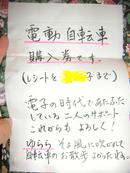 電動自転車
購入券です。
(レシートを 子まで)
電子の時代であたふた
している二人のサポート
これからも よろしく!
ゆらら そよ風に吹かれて
自転車のお散歩よかったね。